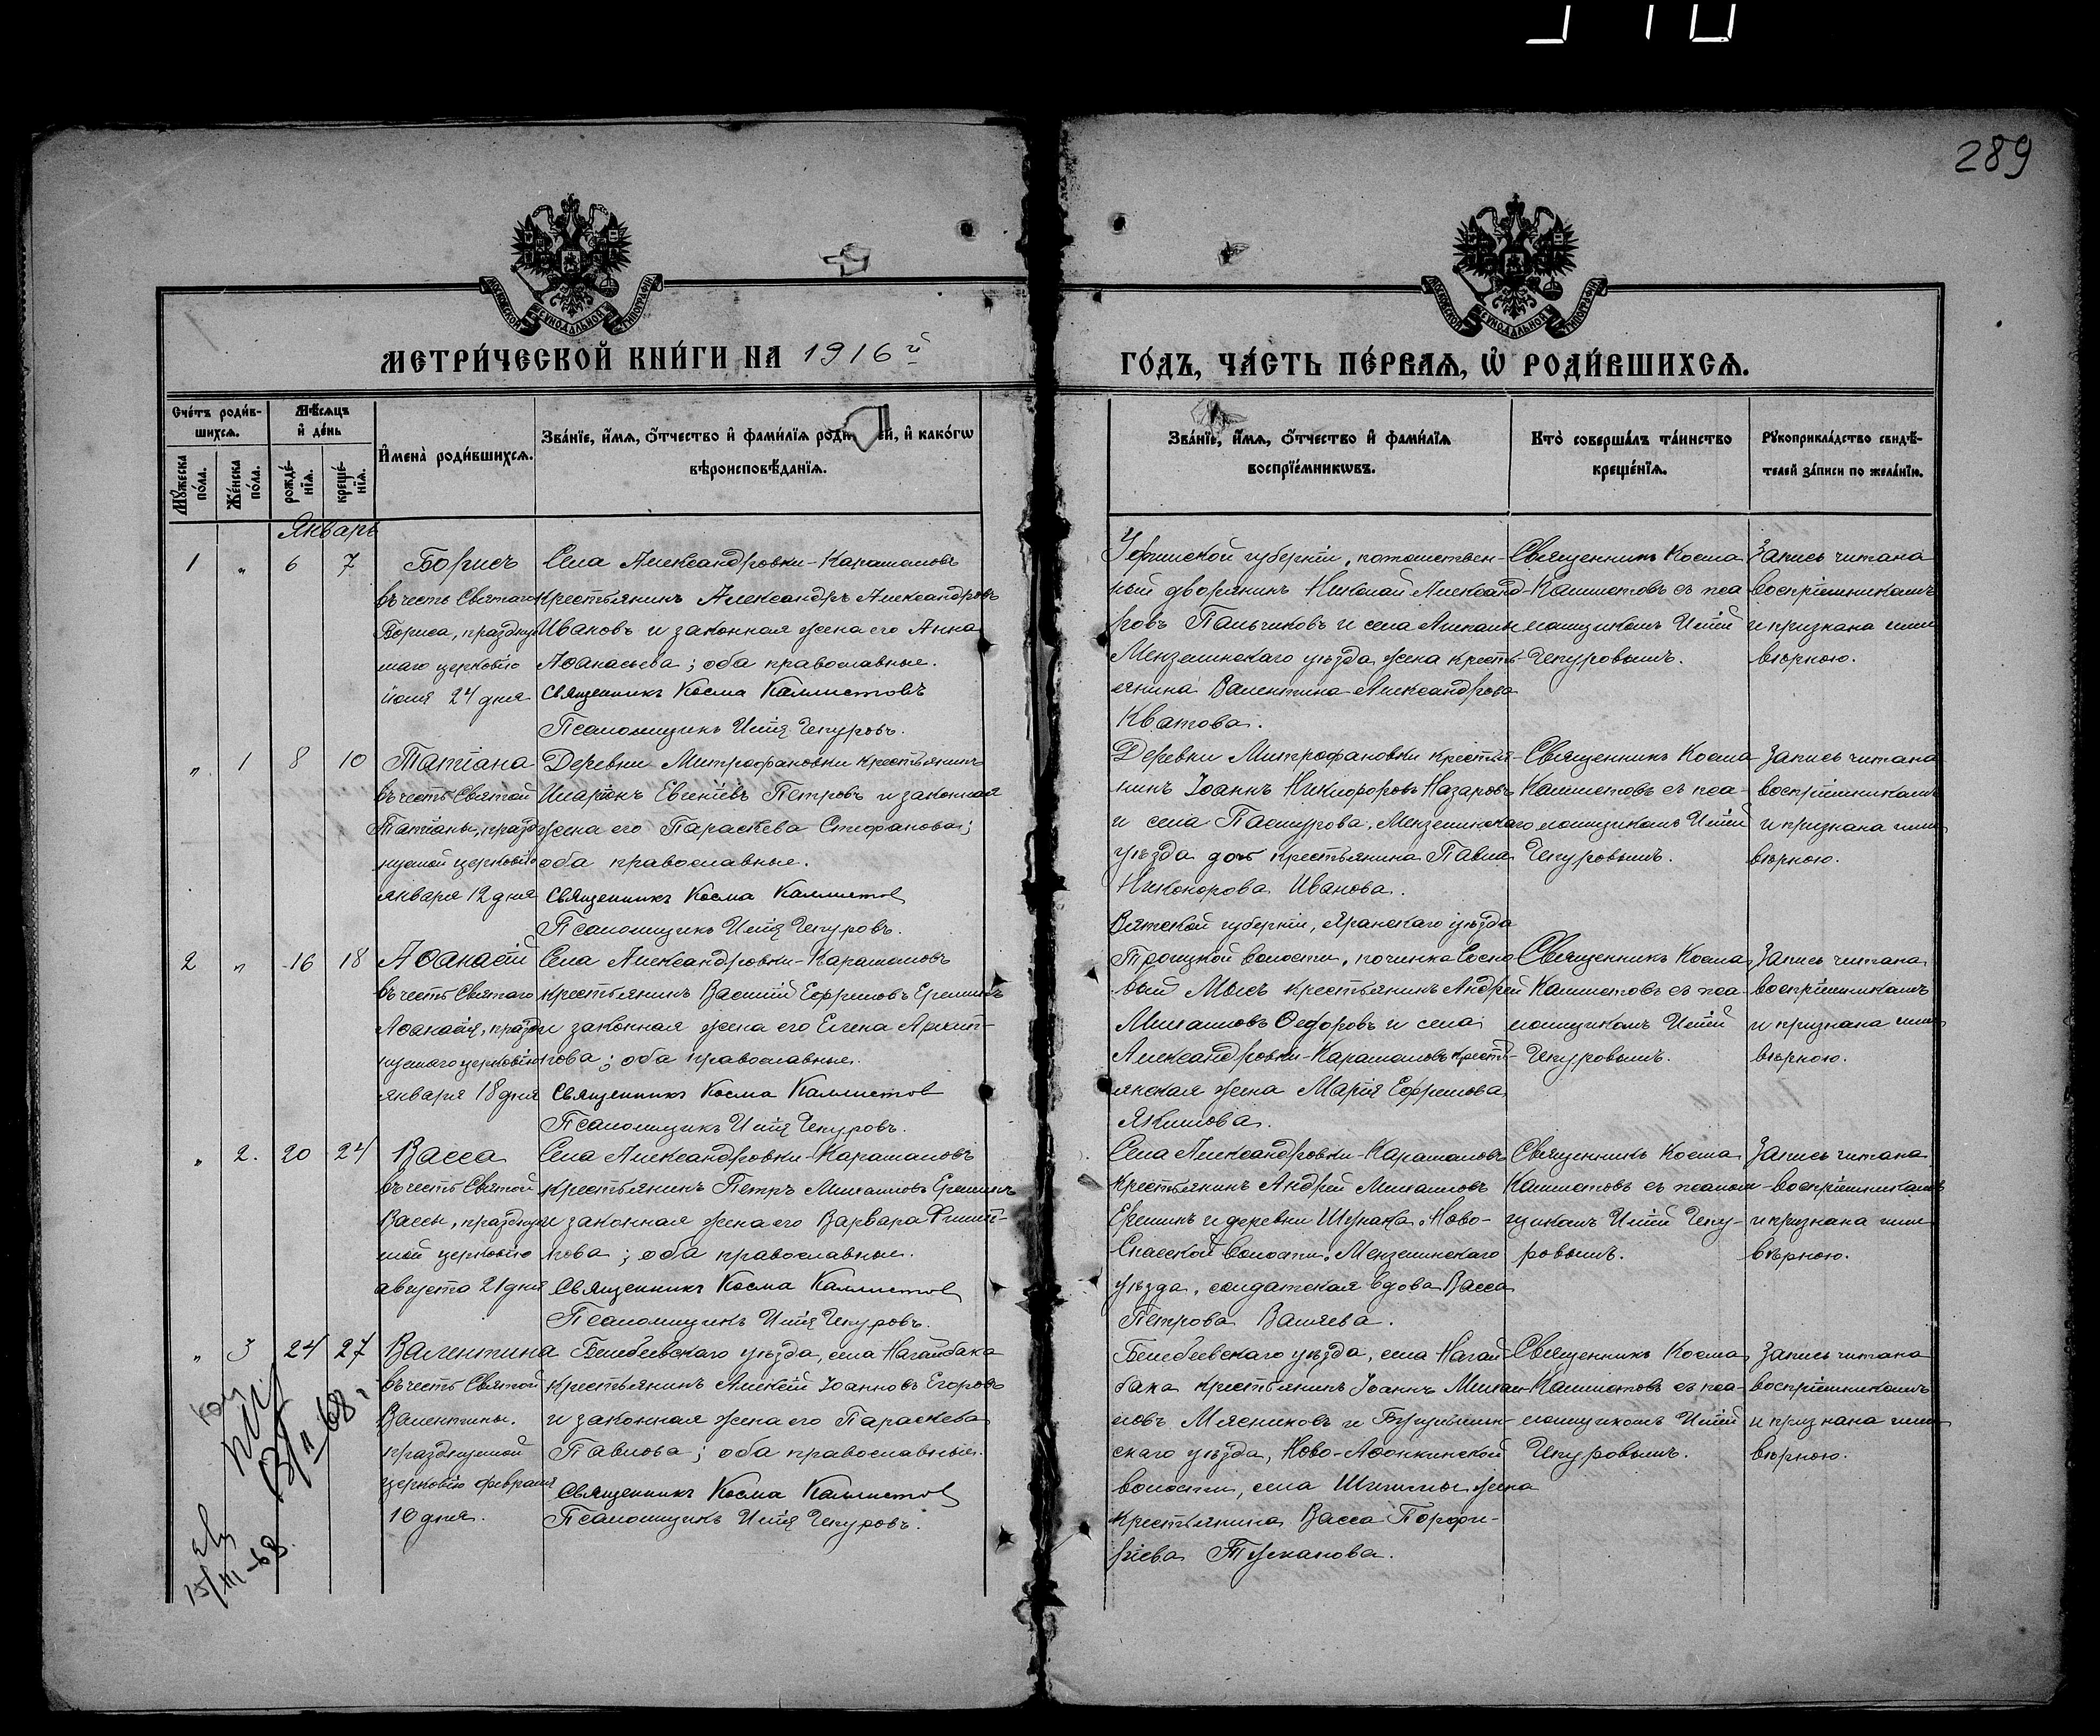 289
МОСКОВСКОЙ СѴНОДАЛЬНОЙ ТИПОГРАФІИ
МОСКОВСКОЙ СѴНОДАЛЬНОЙ ТИПОГРАФІИ
МЕТРИ́ЧЕСКОЙ КНИ́ГИ НА 1916й
ГО́ДЪ, ЧА́СТЬ ПЕ́РВАѦ, Ѡ҆ РОДИ́ВШИХСѦ.
Сче́тъ роди́в-
шихсѧ.
Мѣ́сѧцъ
и҆ де́нь
Мꙋ́жеска
по́ла.
Же́нска
по́ла.
рожде́-
нїѧ.
креще́-
нїѧ.
И҆мена̀ роди́вшихсѧ.
Зва́нїе, и҆́мѧ, ѻ҆́тчество и҆ фами́лїѧ роди́телей, и҆ како́гѡ
вѣроисповѣ́данїѧ.
Зва́нїе, и҆́мѧ, ѻ҆́тчество и҆ фами́лїѧ
воспрїе́мникѡвъ.
Кто̀ соверша́лъ та́инство
креще́нїѧ.
Рꙋкоприкла́дство свидѣ́-
телей за́писи по жела́нїю.
Январь
1 " 6 7
Борисъ
въ честь Святаго
Бориса, праздну
маго церковію
іюля 24 дня
Села Александровки-Карамаловъ
крестьянинъ Александръ Александровъ
Ивановъ и законная жена его Анна
Аѳанасьева; оба православные.
Священникъ Косма Каллистовъ
Псаломщикъ Илія Чепуровъ.
Уфимской губерніи, потомствен-
ный дворянинъ Николай Александ-
ровъ Пальчиковъ и села
Мензелинскаго уѣзда жена кресть-
янина Валентина Александрова
Кватова.
Священникъ Косма
Каллистовъ съ пса
ломщикомъ Иліей
Чепуровымъ.
Запись читана
воспріемникамъ
и признана ими
вѣрною.
" 1 8 10
Татіана
въ честь Святой
Татіаны, празд
нуемой церковію
января 12 дня
Деревни Митрофановки крестьянинъ
Иларіонъ Евгеніевъ Петровъ и законная
жена его Параскева Стефанова;
оба православные.
Священникъ Косма Каллистов
Псаломщикъ Илія Чепуровъ.
Деревни Митрофановки крестья-
нинъ Іоаннъ Никифоровъ Назаровъ
и села Мензелинскаго
уѣзда дочь крестьянина
Никонорова Иванова.
Священникъ Косма
Каллистовъ съ пса-
ломщикомъ Иліей
Чепуровымъ.
Запись читана
воспріемникамъ
и признана ими
вѣрною.
2 " 16 18
Аѳанасій
въ честь Святаго
Аѳанасія, празд
нуемаго церковію
января 18 дня
Села Александровки-Карамаловъ
крестьянинъ Василій Ефремовъ Ереминъ
и законная жена его Елена Архип-
пова; оба православные.
Священникъ Косма Каллистов
Псаломщикъ Илія Чепуровъ.
Вятской губерніи, Яранскаго уѣзда
Троицкой волости, починка Сосно
вый Мысъ крестьянинъ Андрей
Михаиловъ Ѳедоровъ и села
Александровки-Карамаловъ кресть-
янская жена Марія Ефремова
Якимова.
Священникъ Косма
Каллистовъ съ пса-
ломщикомъ Иліей
Чепуровымъ.
Запись читана
воспріемникамъ
и признана ими
вѣрною.
" 2. 20 24
Васса
въ честь Святой
Вассы, праздну
мой церковію
августа 21 дня
Села Александровки-Карамаловъ
крестьянинъ Петръ Михаиловъ Ереминъ
и законная жена его Варвара Филип-
пова; оба православные.
Священникъ Косма Каллистов
Псаломщикъ Илія Чепуровъ.
Села Александровки-Карамаловъ
крестьянинъ Андрей Михаиловъ
Ереминъ и деревни Шунака, Ново-
Спасской волости, Мензелинскаго
уѣзда, солдатская вдова Васса
Петрова Валяева.
Священникъ Косма
Каллистовъ съ псалом-
щикомъ Иліей Чепу-
ровымъ.
Запись читана
воспріемникамъ
и признана ими
вѣрною.
" 3 24 27
Валентина
въ честь Святой
Валентины,
празднуемой
церковію февраля
10 дня.
Белебеевскаго уѣзда, села Нагайбака
крестьянинъ Алексій Іоанновъ Егоровъ
и законная жена его Параскева
Павлова; оба православные.
Священникъ Косма Каллистов
Псаломщикъ Илія Чепуровъ.
Белебеевскаго уѣзда, села Нагай-
бака крестьянинъ Іоаннъ Михаи
ловъ Мясниковъ и Бугульмин-
скаго уѣзда, Ново-Аѳонкинской
волости, села Шигимы жена
крестьянина Васса Порфи-
ріева Туманова.
Священникъ Косма
Каллистовъ съ пса-
ломщикомъ Иліей
Чепуровымъ.
Запись читана
воспріемникамъ
и признана ими
вѣрною.
13/II 68 г
15/III-68.